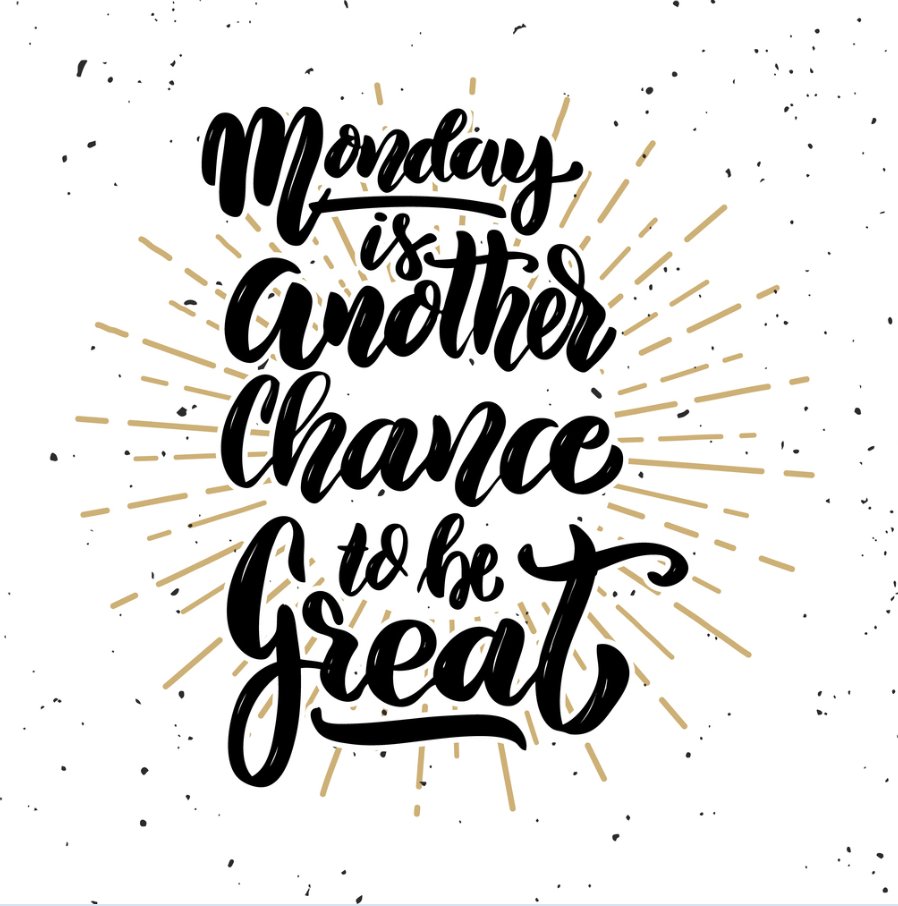 Monday
is
Another
Chance
to be
Great